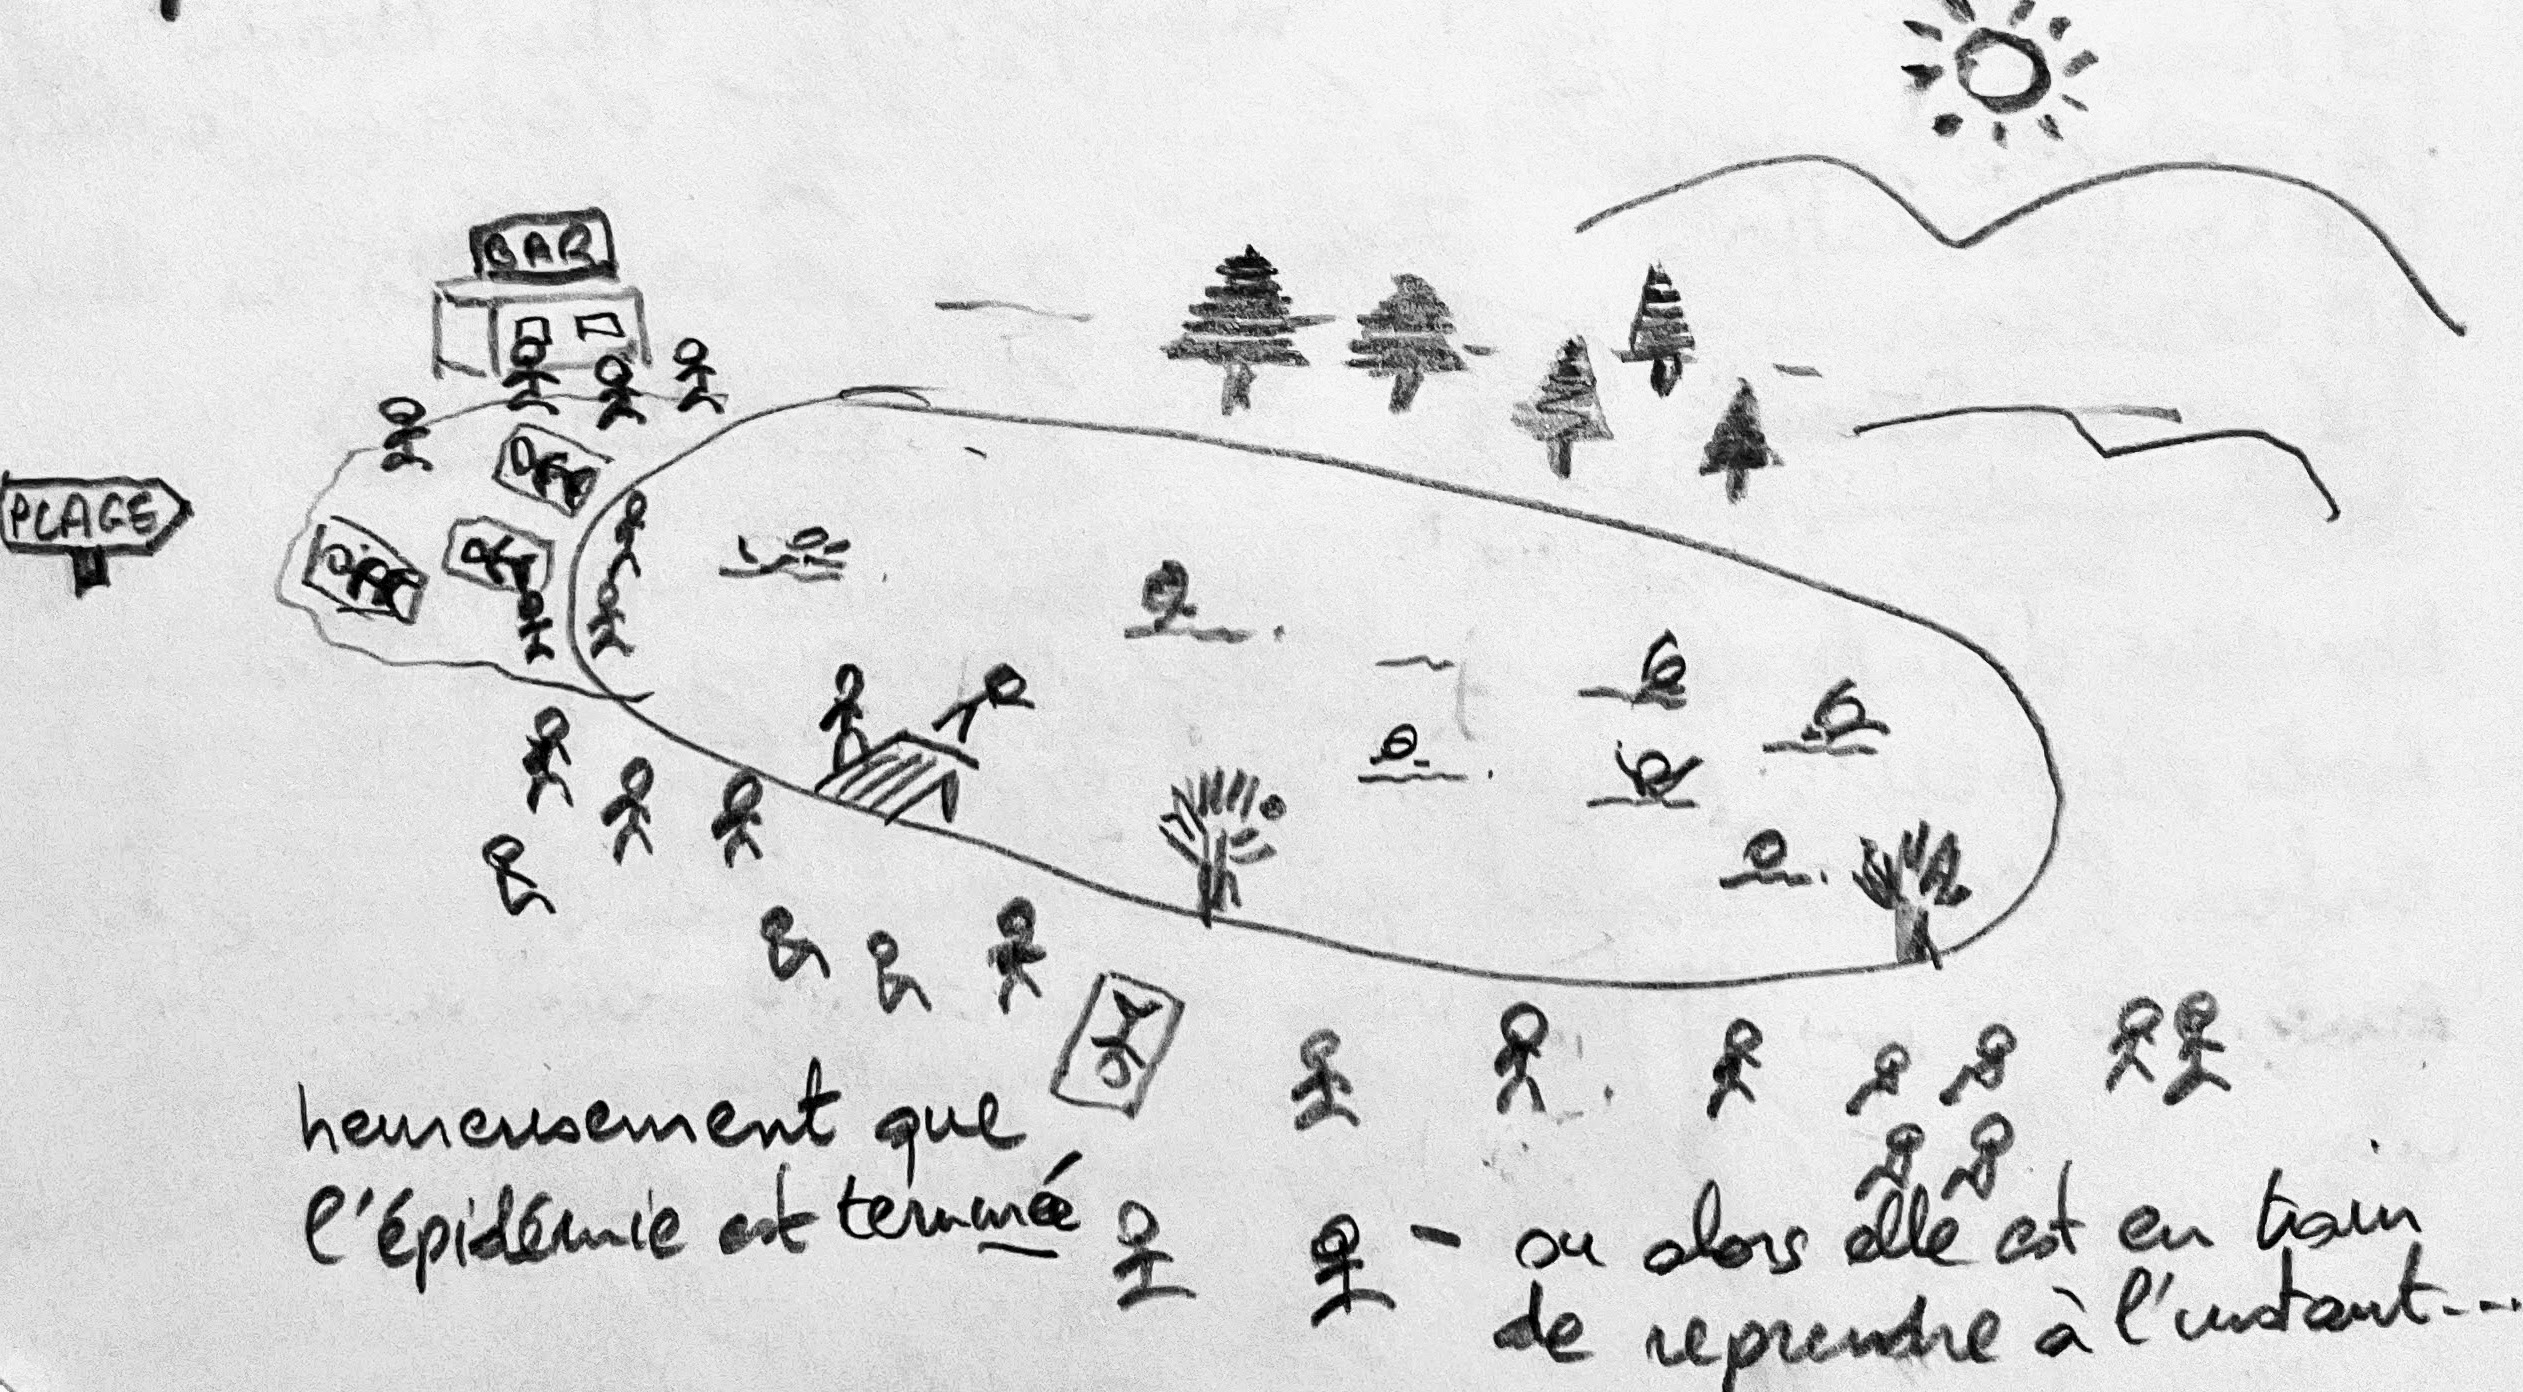 BAR
PLAGE
heureusement que
l'épidémie est terminée
- ou alors elle est en train
de reprendre à l'instant...